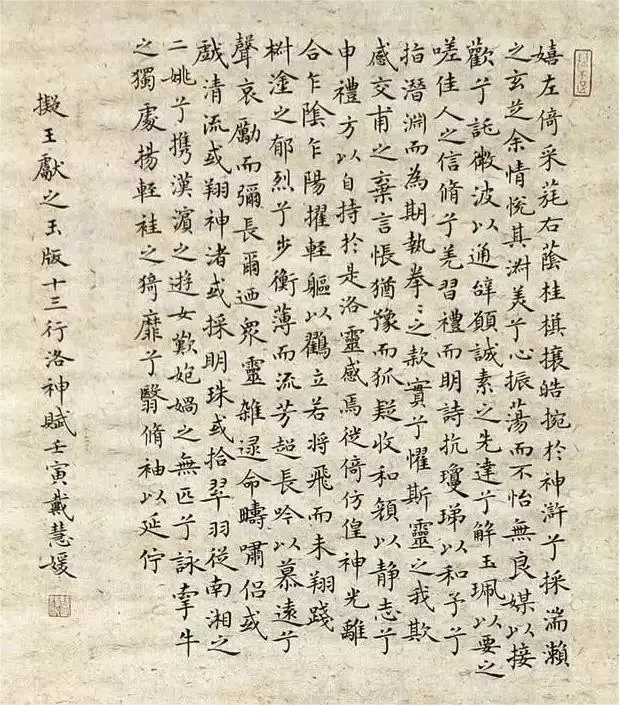 嬉左倚采旄右蔭桂棋攘皓捥於神滸兮採湍瀨
之玄芝余情恱其淑美兮心振蕩而不怡無良媒以接
歡兮託微波以通辭願誠素之先達兮解玉珮以要之
嗟佳人之信脩兮羌習禮而明詩抗瓊珶以和予兮
指潛淵而為期執拳〻之款實兮懼斯靈之我欺
感交甫之棄言悵猶豫而狐疑收和顏以静志兮
申禮方以自持於是洛靈感焉徙倚仿偟神光離
合乍陰乍陽擢輕軀以鶴立若將飛而未翔踐
椒塗之郁烈兮步衡薄而流芳超長吟以慕遠兮
聲哀勵而彌長爾迺衆靈雜遝命疇嘯侶或
戲清流或翔神渚或採明珠或拾翠羽從南湘之
二姚兮攜漢濱之遊女歎炮媧之無匹兮詠牽牛
之獨處揚輕袿之猗靡兮翳脩袖以延佇
擬王獻之玉版十三行洛神賦壬寅戴慧媛